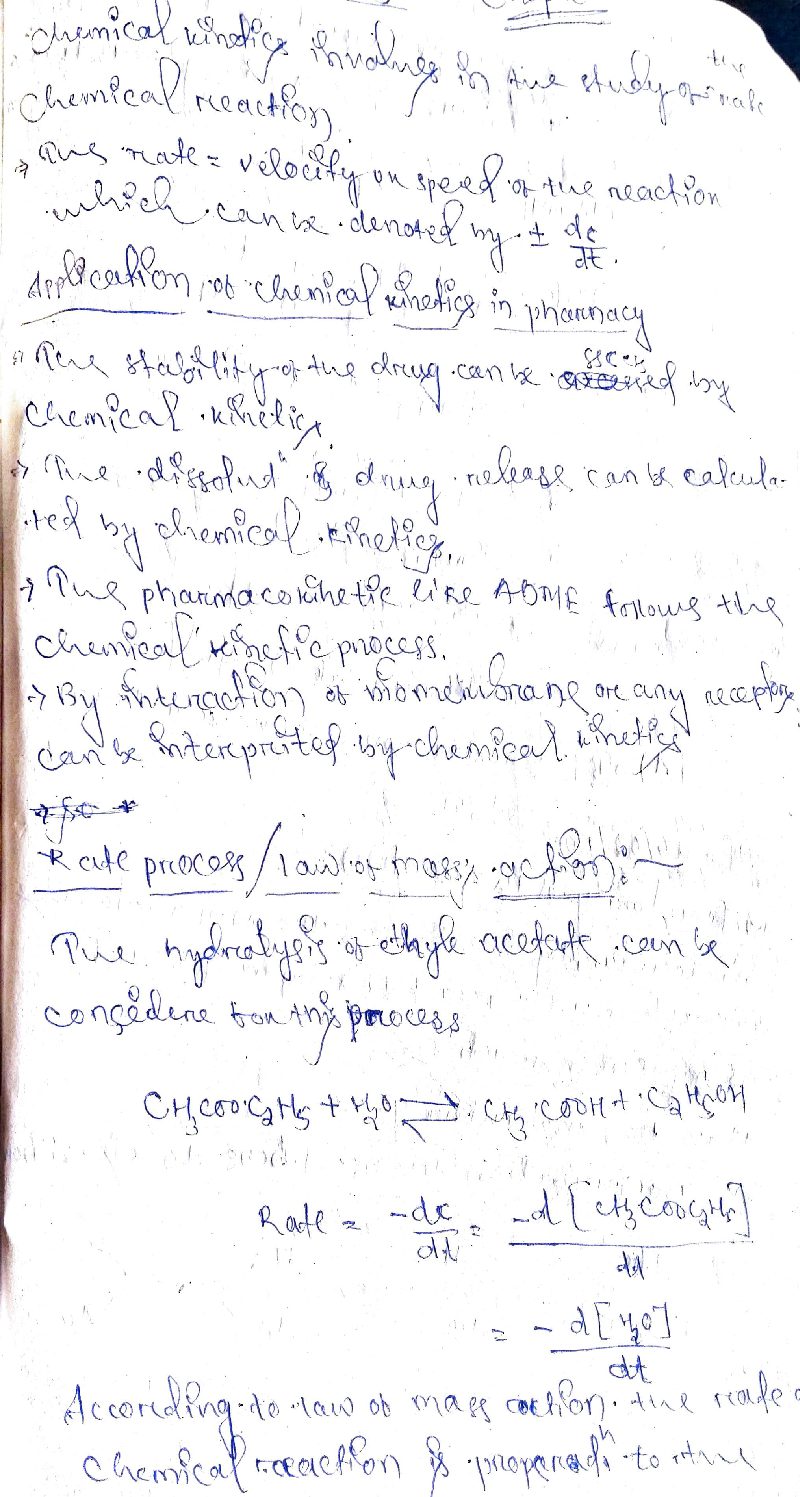 chemical kinetics involves in the study of the rate
chemical reaction
→ The rate = velocity or speed of the reaction
which can be denoted by ± dc/dt.
Application of chemical kinetics in pharmacy
→ The stability of the drug can be by
chemical kinetics
→ The dissolutⁿ & drug release can be calcula-
ted by chemical kinetics.
→ The pharmacokinetic like ADME follows the
chemical kinetic process.
→ By interaction of biomembrane or any receptor
can be interprited by chemical kinetics
Rate process/law of mass action:~
The hydrolysis of ethyle acetate can be
considere for this process
CH₃COOC₂H₅ + H₂O ⇌ CH₃COOH + C₂H₅OH
Rate = -dc/dt = -d[CH₃COOC₂H₅]/dt
= -d[H₂O]/dt
According to law of mass action the rate
chemical reaction is to the